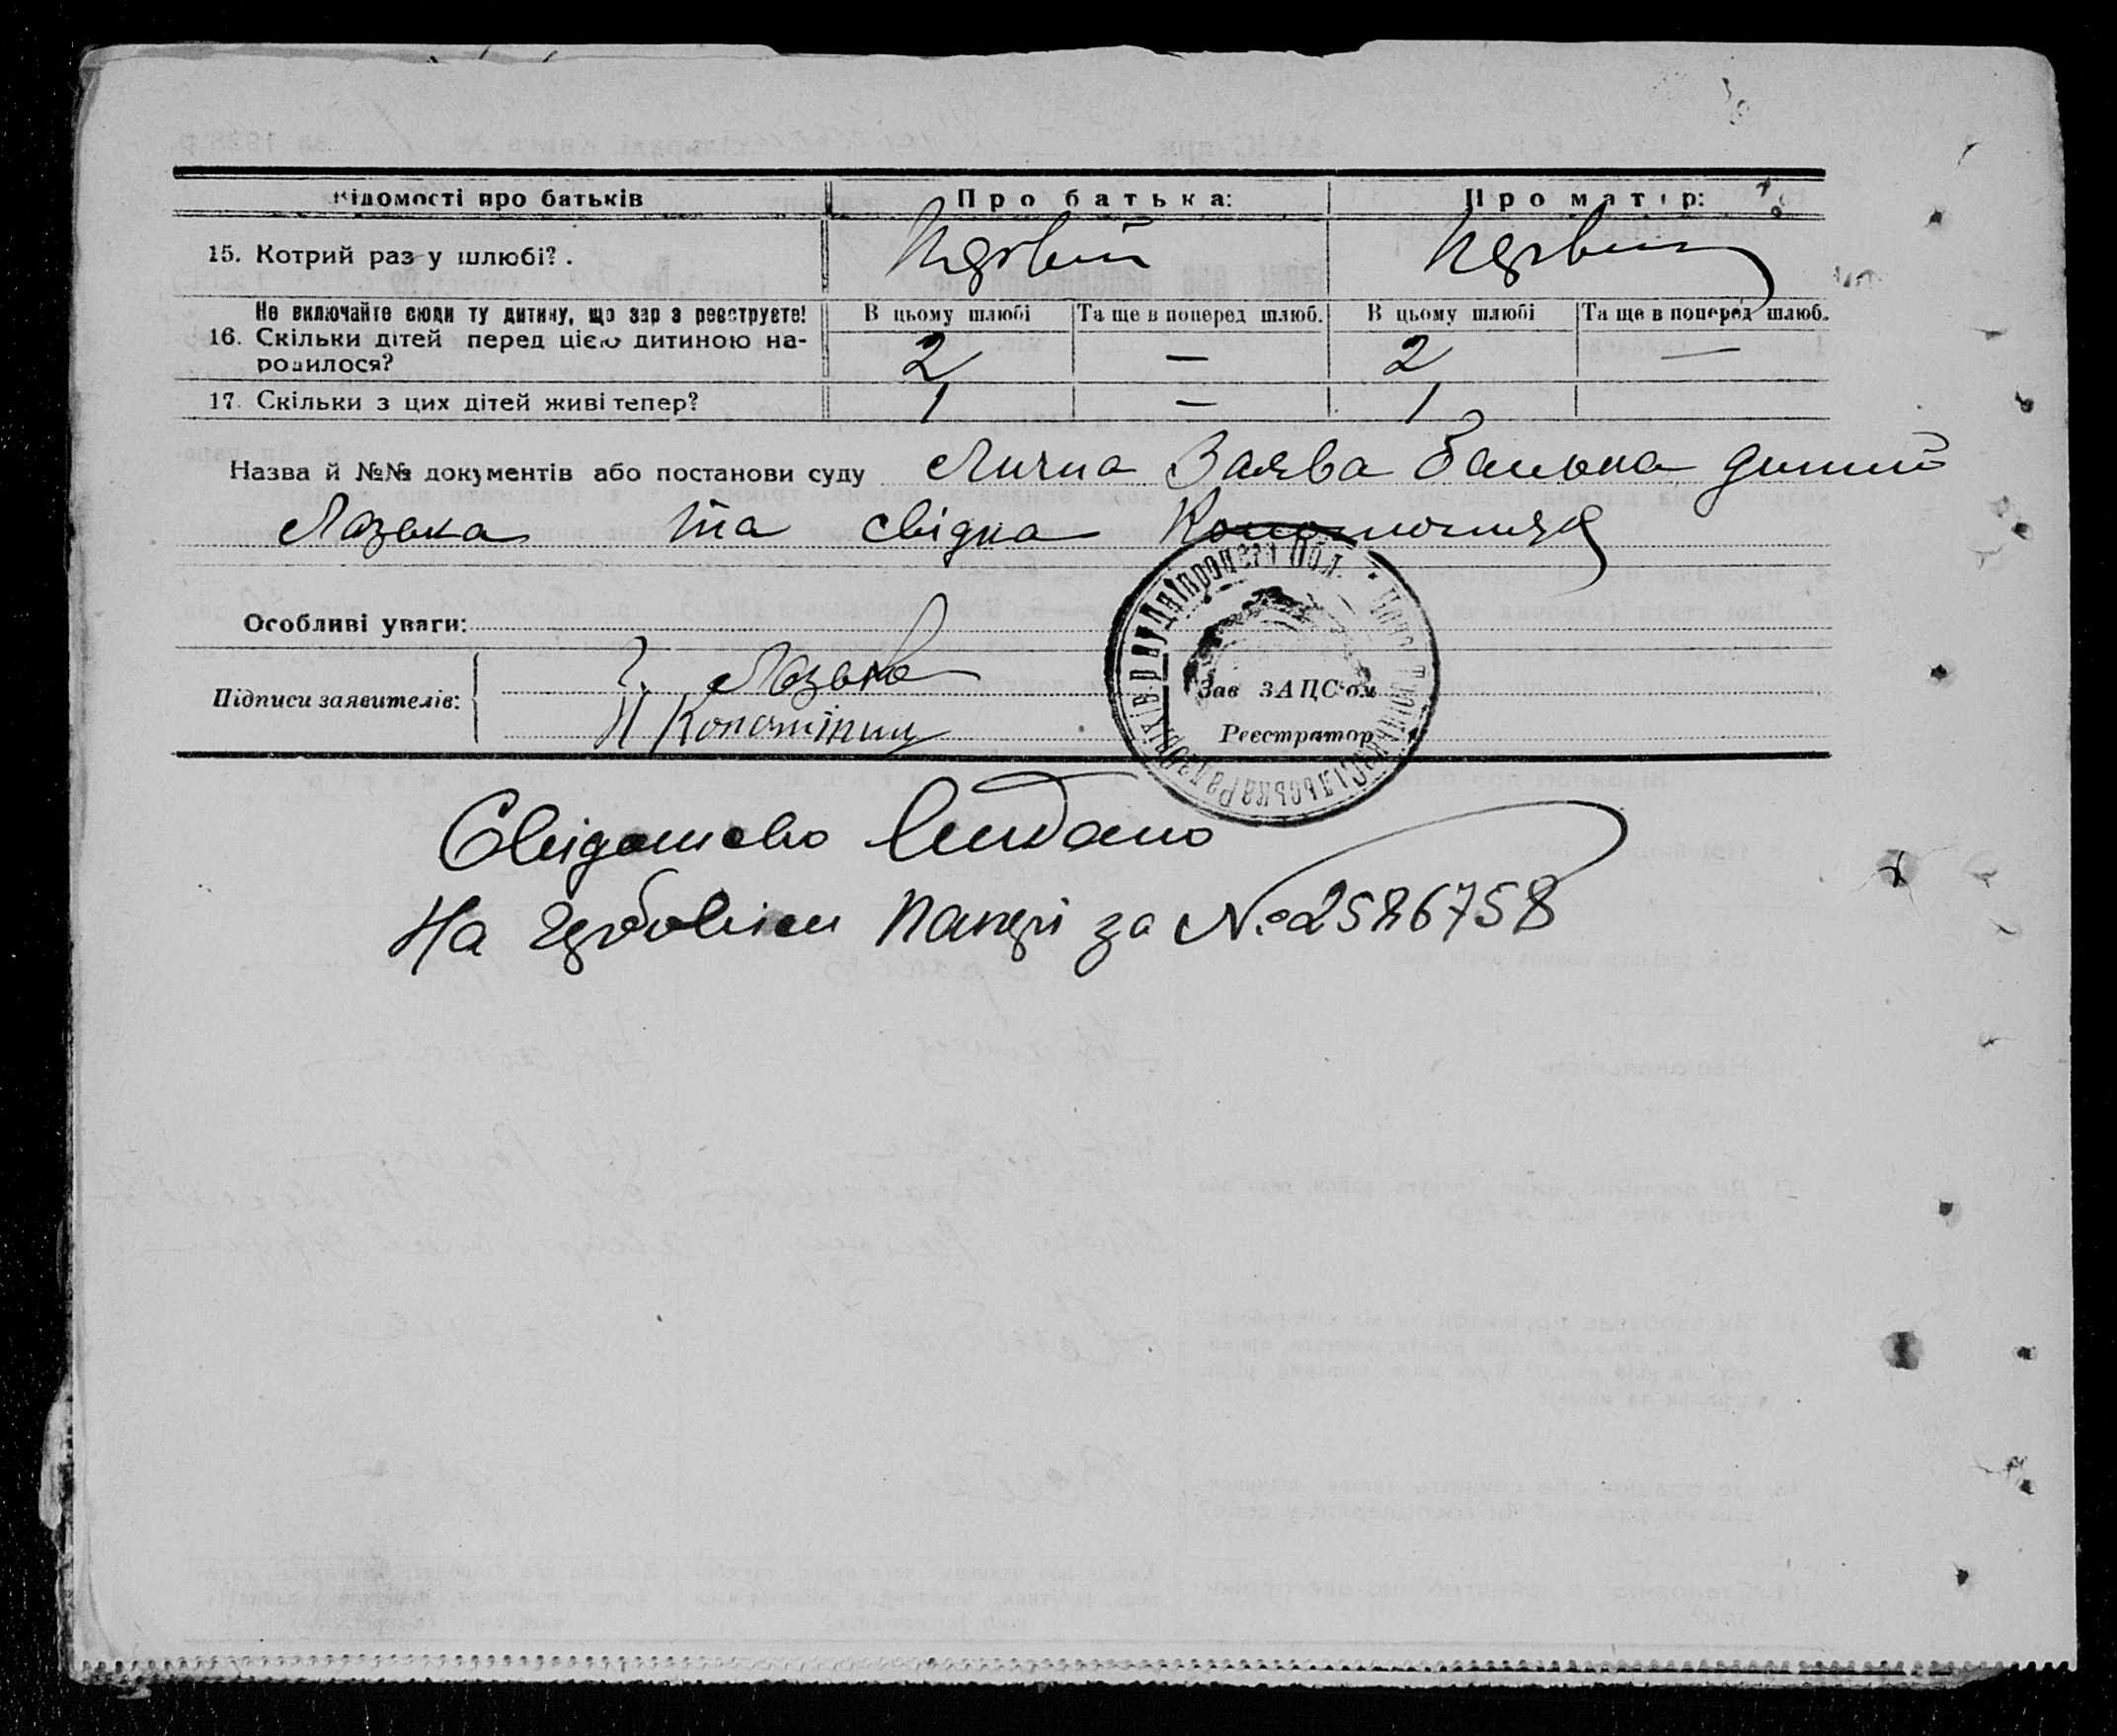 Відомості про батьків Про батька: Про матір:
15. Котрий раз у шлюбі? . Первий Первий
Не включайте сюди ту дитину, що зар з реєструєте! В цьому шлюбі Та ще в поперед шлюб. В цьому шлюбі Та ще в поперед шлюб.
16. Скільки дітей перед цією дитиною на-
родилося? 2 — 2 —
17. Скільки з цих дітей живі тепер? 1 — 1
Назва й №№ документів або постанови суду Лична Заява батька
Лазька та свідка
Особливі уваги:
Підписи заявителів: Лазько
Зав ЗАЦС'ом
Реєстратор
Свідотство видано
На гербовім папері за № 2586758